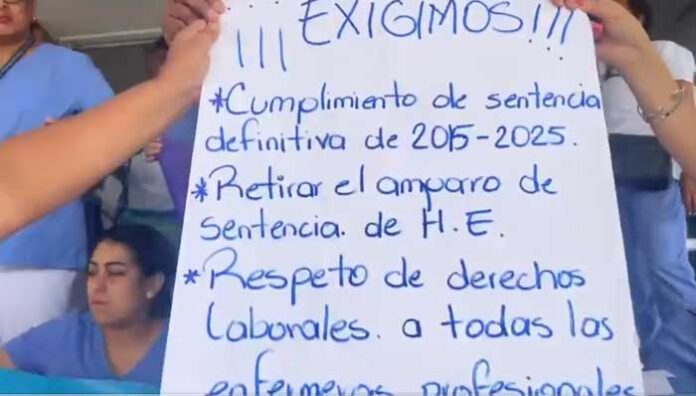 ¡¡¡EXIGIMOS!!!
*Cumplimiento de sentencia
definitiva de 2015-2025.
*Retirar el amparo de
sentencia. de H.E.
*Respeto de derechos
laborales. a todas las
enfermeras profesionales